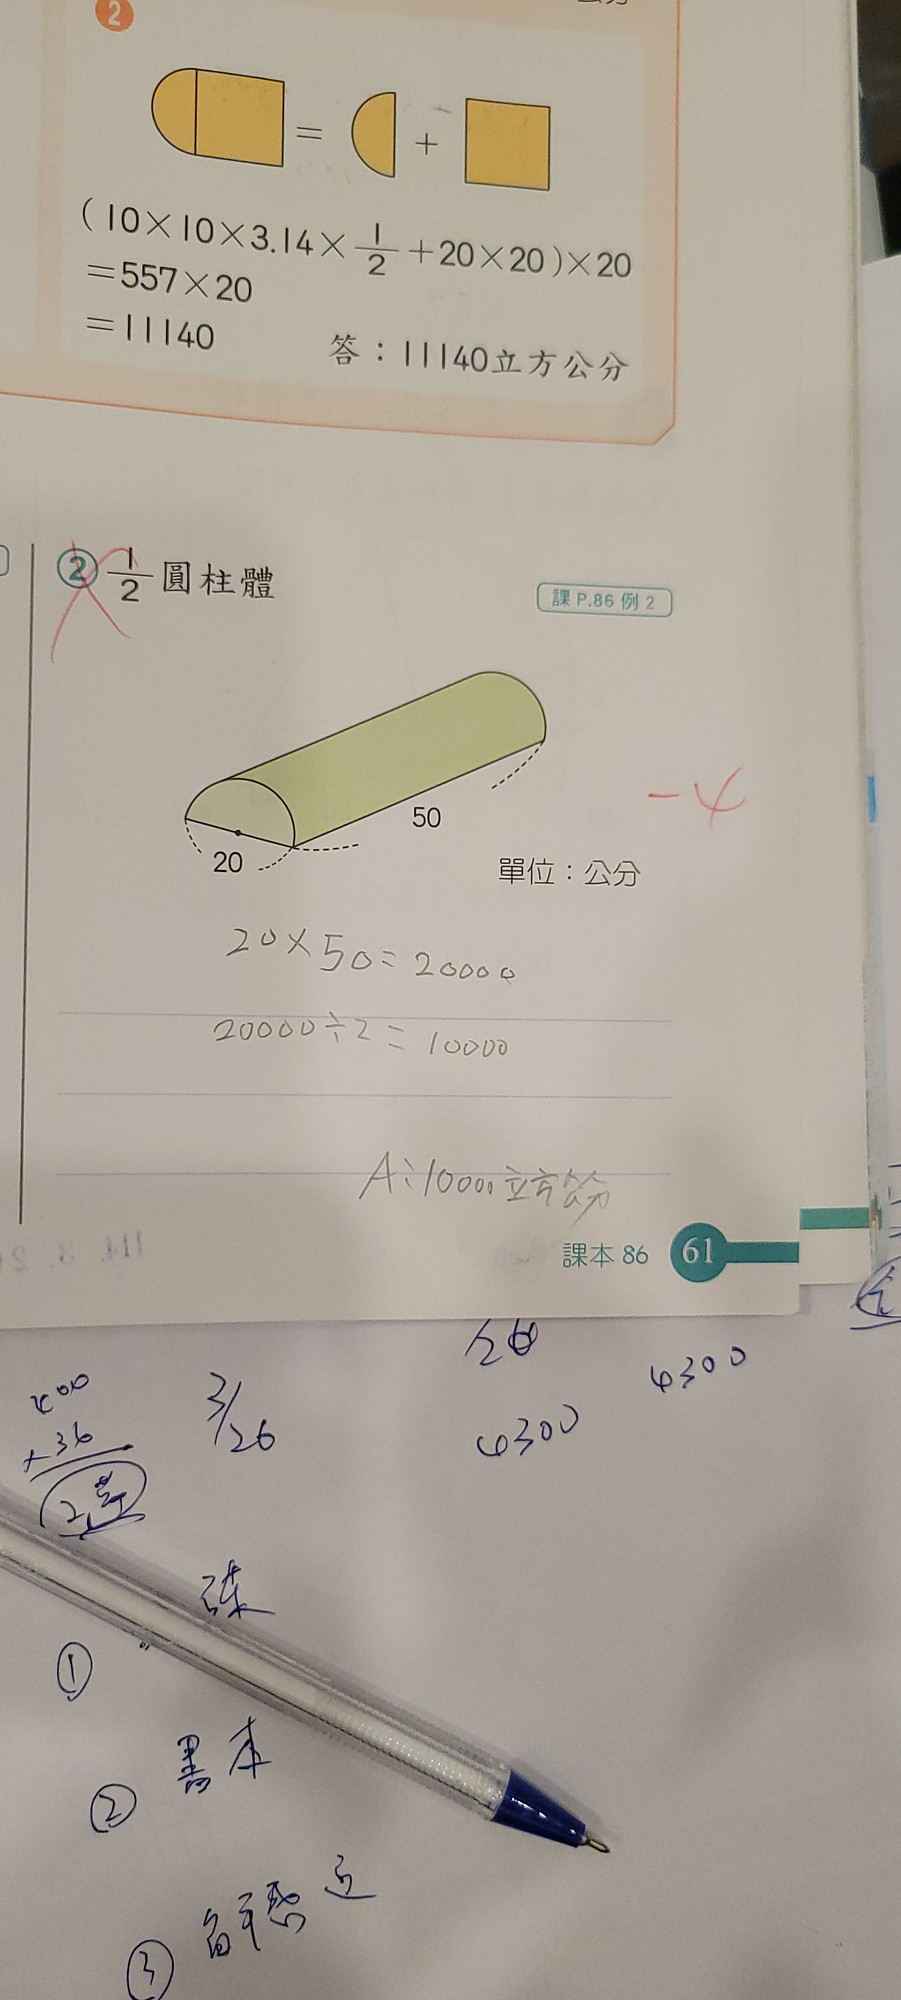 2
= +
(10×10×3.14×1/2+20×20)×20
=557×20
=11140
答：11140立方公分
② 1/2圓柱體
課 P.86 例 2
-4
50
20
單位：公分
20×50=20000
20000÷2=10000
A:10000立方公分
課本 86 61
3/26
6300
6300
+36
①
②書本
③